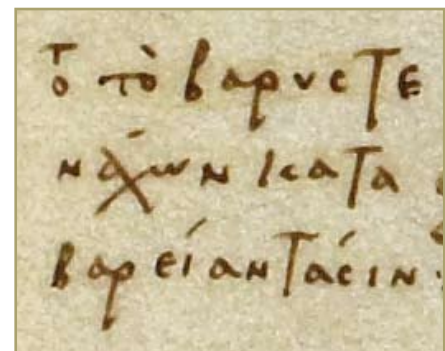 οτ τὸ βαρυστε
νάχων κατα
βαρείαν τάσιν